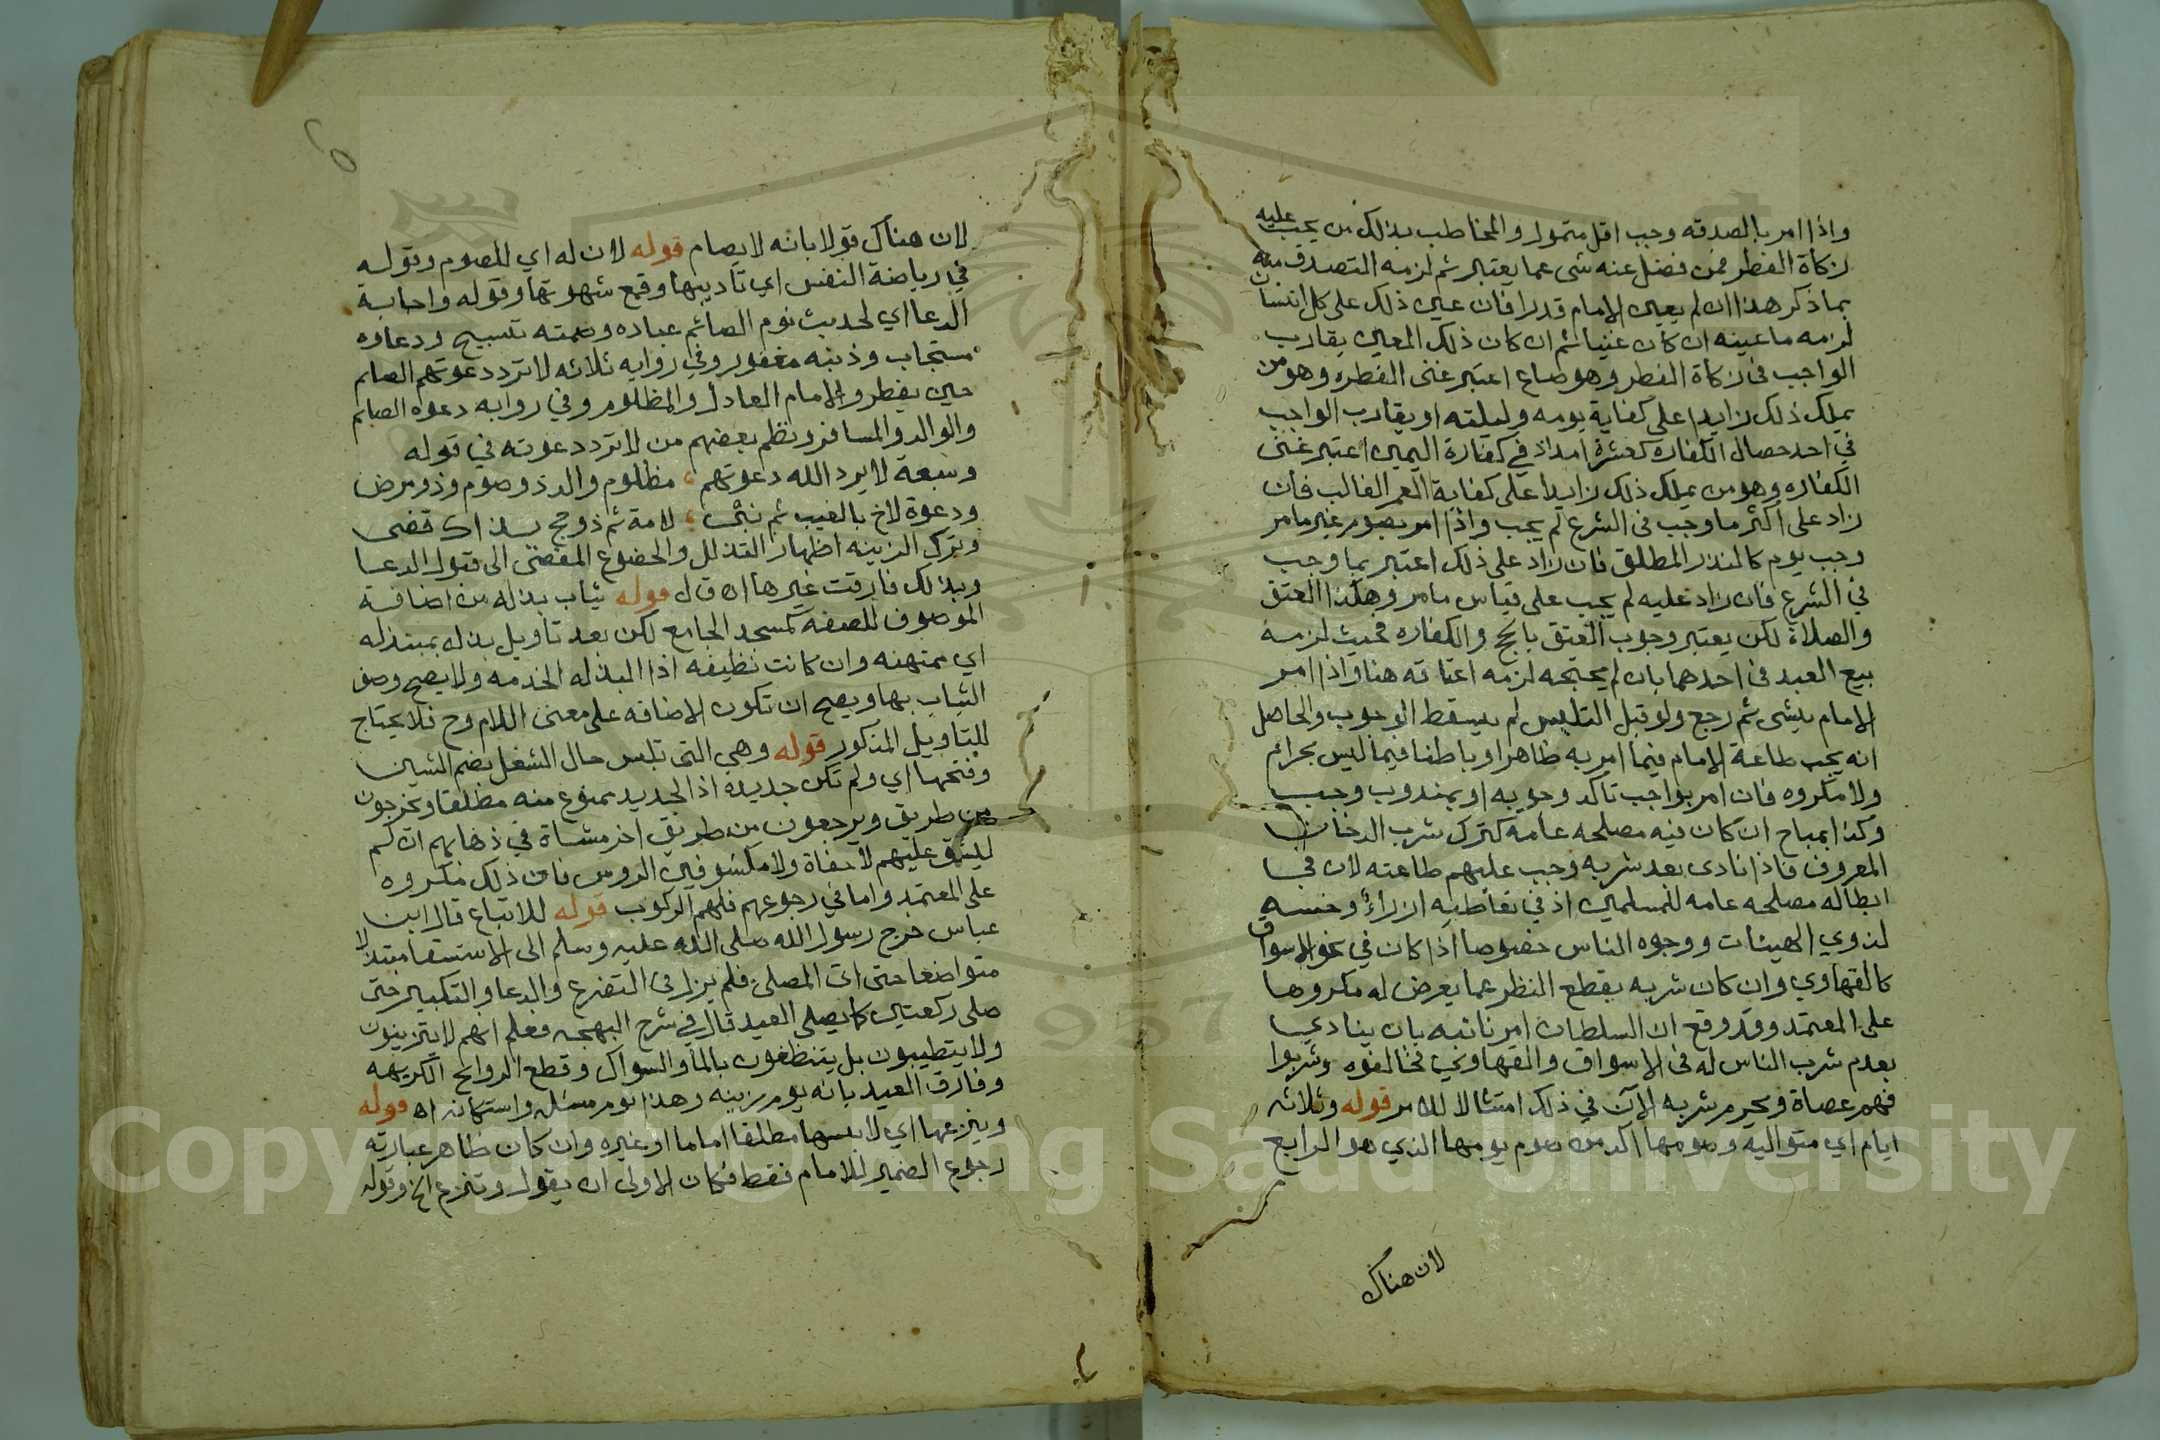 واذا امر بالصدقه وجب اقل متمول والمخاطب بذلك من يجب عليه
زكاة الفطر فمن فضل عنه شى عما يعتبر ثم لزمه التصدق منه
بما ذكر هذا ان لم يعين الامام قدرا فان عين ذلك على كل انسان
لزمه ما عينه ان كان غنيا ثم ان كان ذلك المعين يقارب
الواجب فى زكاة الفطر وهو صاع اعتبر غنى الفطره وهو من
يملك ذلك زايدا على كفاية يومه وليلته او يقارب الواجب
في احد خصال الكفاره كعشرة امداد في كفارة اليمين اعتبر غنى
الكفاره وهو من يملك ذلك زايدا على كفاية العمر الغالب فان
زاد على اكثر ما وجب فى الشرع لم يجب واذا امر بصوم غير ما مر
وجب يوم كالنذر المطلق فان زاد على ذلك اعتبر بما وجب
في الشرع فان زاد عليه لم يجب على قياس ما مر وهكذا العتق
والصلاة لكن يعتبر وجوب العتق بالحج والكفاره فحيث لزمه
بيع العبد فى احدهما بان لم يحتجه لزمه اعتاقه هنا واذا امر
الامام بشى ثم رجع ولو قبل التلبس لم يسقط الوجوب والحاصل
انه يجب طاعة الامام فيما امر به ظاهرا وباطنا فيما ليس بحرام
ولا مكروه فان امر بواجب تاكد وجوبه او بمندوب وجب
وكذا بمباح ان كان فيه مصلحه عامه كترك شرب الدخان
المعروف فاذا نادى بعد شربه وجب عليهم طاعته لان في
ابطاله مصلحه عامه للمسلمين اذ في تعاطيه ازراء وخسه
لذوي الهيئات ووجوه الناس خصوصا اذا كان في نحو الاسواق
كالقهاوي وان كان شربه بقطع النظر عما يعرض له مكروها
على المعتمد وقد وقع ان السلطان امر نائبه بان ينادي
بعدم شرب الناس له فى الاسواق والقهاوي فخالفوه وشربوا
فهم عصاة فيحرم شربه الآن في ذلك امتثالا للامر قوله وثلاثه
ايام اي متواليه وصومها اكد من صوم يومها الذي هو الرابع
لان هناك
لان هناك قولا بانه لا يصام قوله لان له اي للصوم وقوله
في رياضة النفس اي تاديبها وقمع شهوتها وقوله واجابة
الدعا اي لحديث نوم الصائم عباده وصمته تسبيح ودعاوه
مستجاب وذنبه مغفور وفي روايه ثلاثه لا ترد دعوتهم الصائم
حين يفطر والامام العادل والمظلوم وفي روايه دعوه الصائم
والوالد والمسافر ونظم بعضهم من لا ترد دعوته في قوله
وسبعة لا يرد الله دعوتهم ؛ مظلوم والد ذو صوم وذو مرض
ودعوة لاخ بالغيب ثم نبى ؛ لامة ثم ذو حج بذاك قضى
وترك الزينه اظهار التذلل والخضوع المفضى الى قبول الدعا
وبذلك فارقت غيرها اه ق ل قوله ثياب بذله من اضافة
الموصوف للصفه كمسجد الجامع لكن بعد تاويل بذله بمبتذله
اي ممتهنه وان كانت نظيفه اذا البذله الخدمه ولا يصح وصف
الثياب بها ويصح ان تكون الاضافه على معنى اللام وح فلا يحتاج
للتاويل المذكور قوله وهي التى تلبس حال الشغل بضم الشين
وفتحها اي ولم تكن جديده اذ الجديد ممنوع منه مطلقا ويخرجون
من طريق ويرجعون من طريق اخر مشاة في ذهابهم ان لم
يشق عليهم لا حفاة ولا مكشوفين الروس فان ذلك مكروه
على المعتمد واما في رجوعهم فلهم الركوب قوله للاتباع قال ابن
عباس خرج رسول الله صلى الله عليه وسلم الى الاستسقا متبذلا
متواضعا حتى اتى المصلى فلم يزل فى التضرع والدعا والتكبير حتى
صلى ركعتين كما يصلى العيد قال في شرح البهجه فعلم انهم لا يتزينون
ولا يتطيبون بل يتنظفون بالماء والسواك وقطع الروايح الكريهه
وفارق العيد بانه يوم زينه وهذا يوم مسئله واستكانه اه قوله
وينزعها اي لابسها مطلقا اماما او غيره وان كان ظاهر عبارته
رجوع الضمير للامام فقط فكان الاولى ان يقول وتنزع الخ وقوله
Copyright © King Saud University